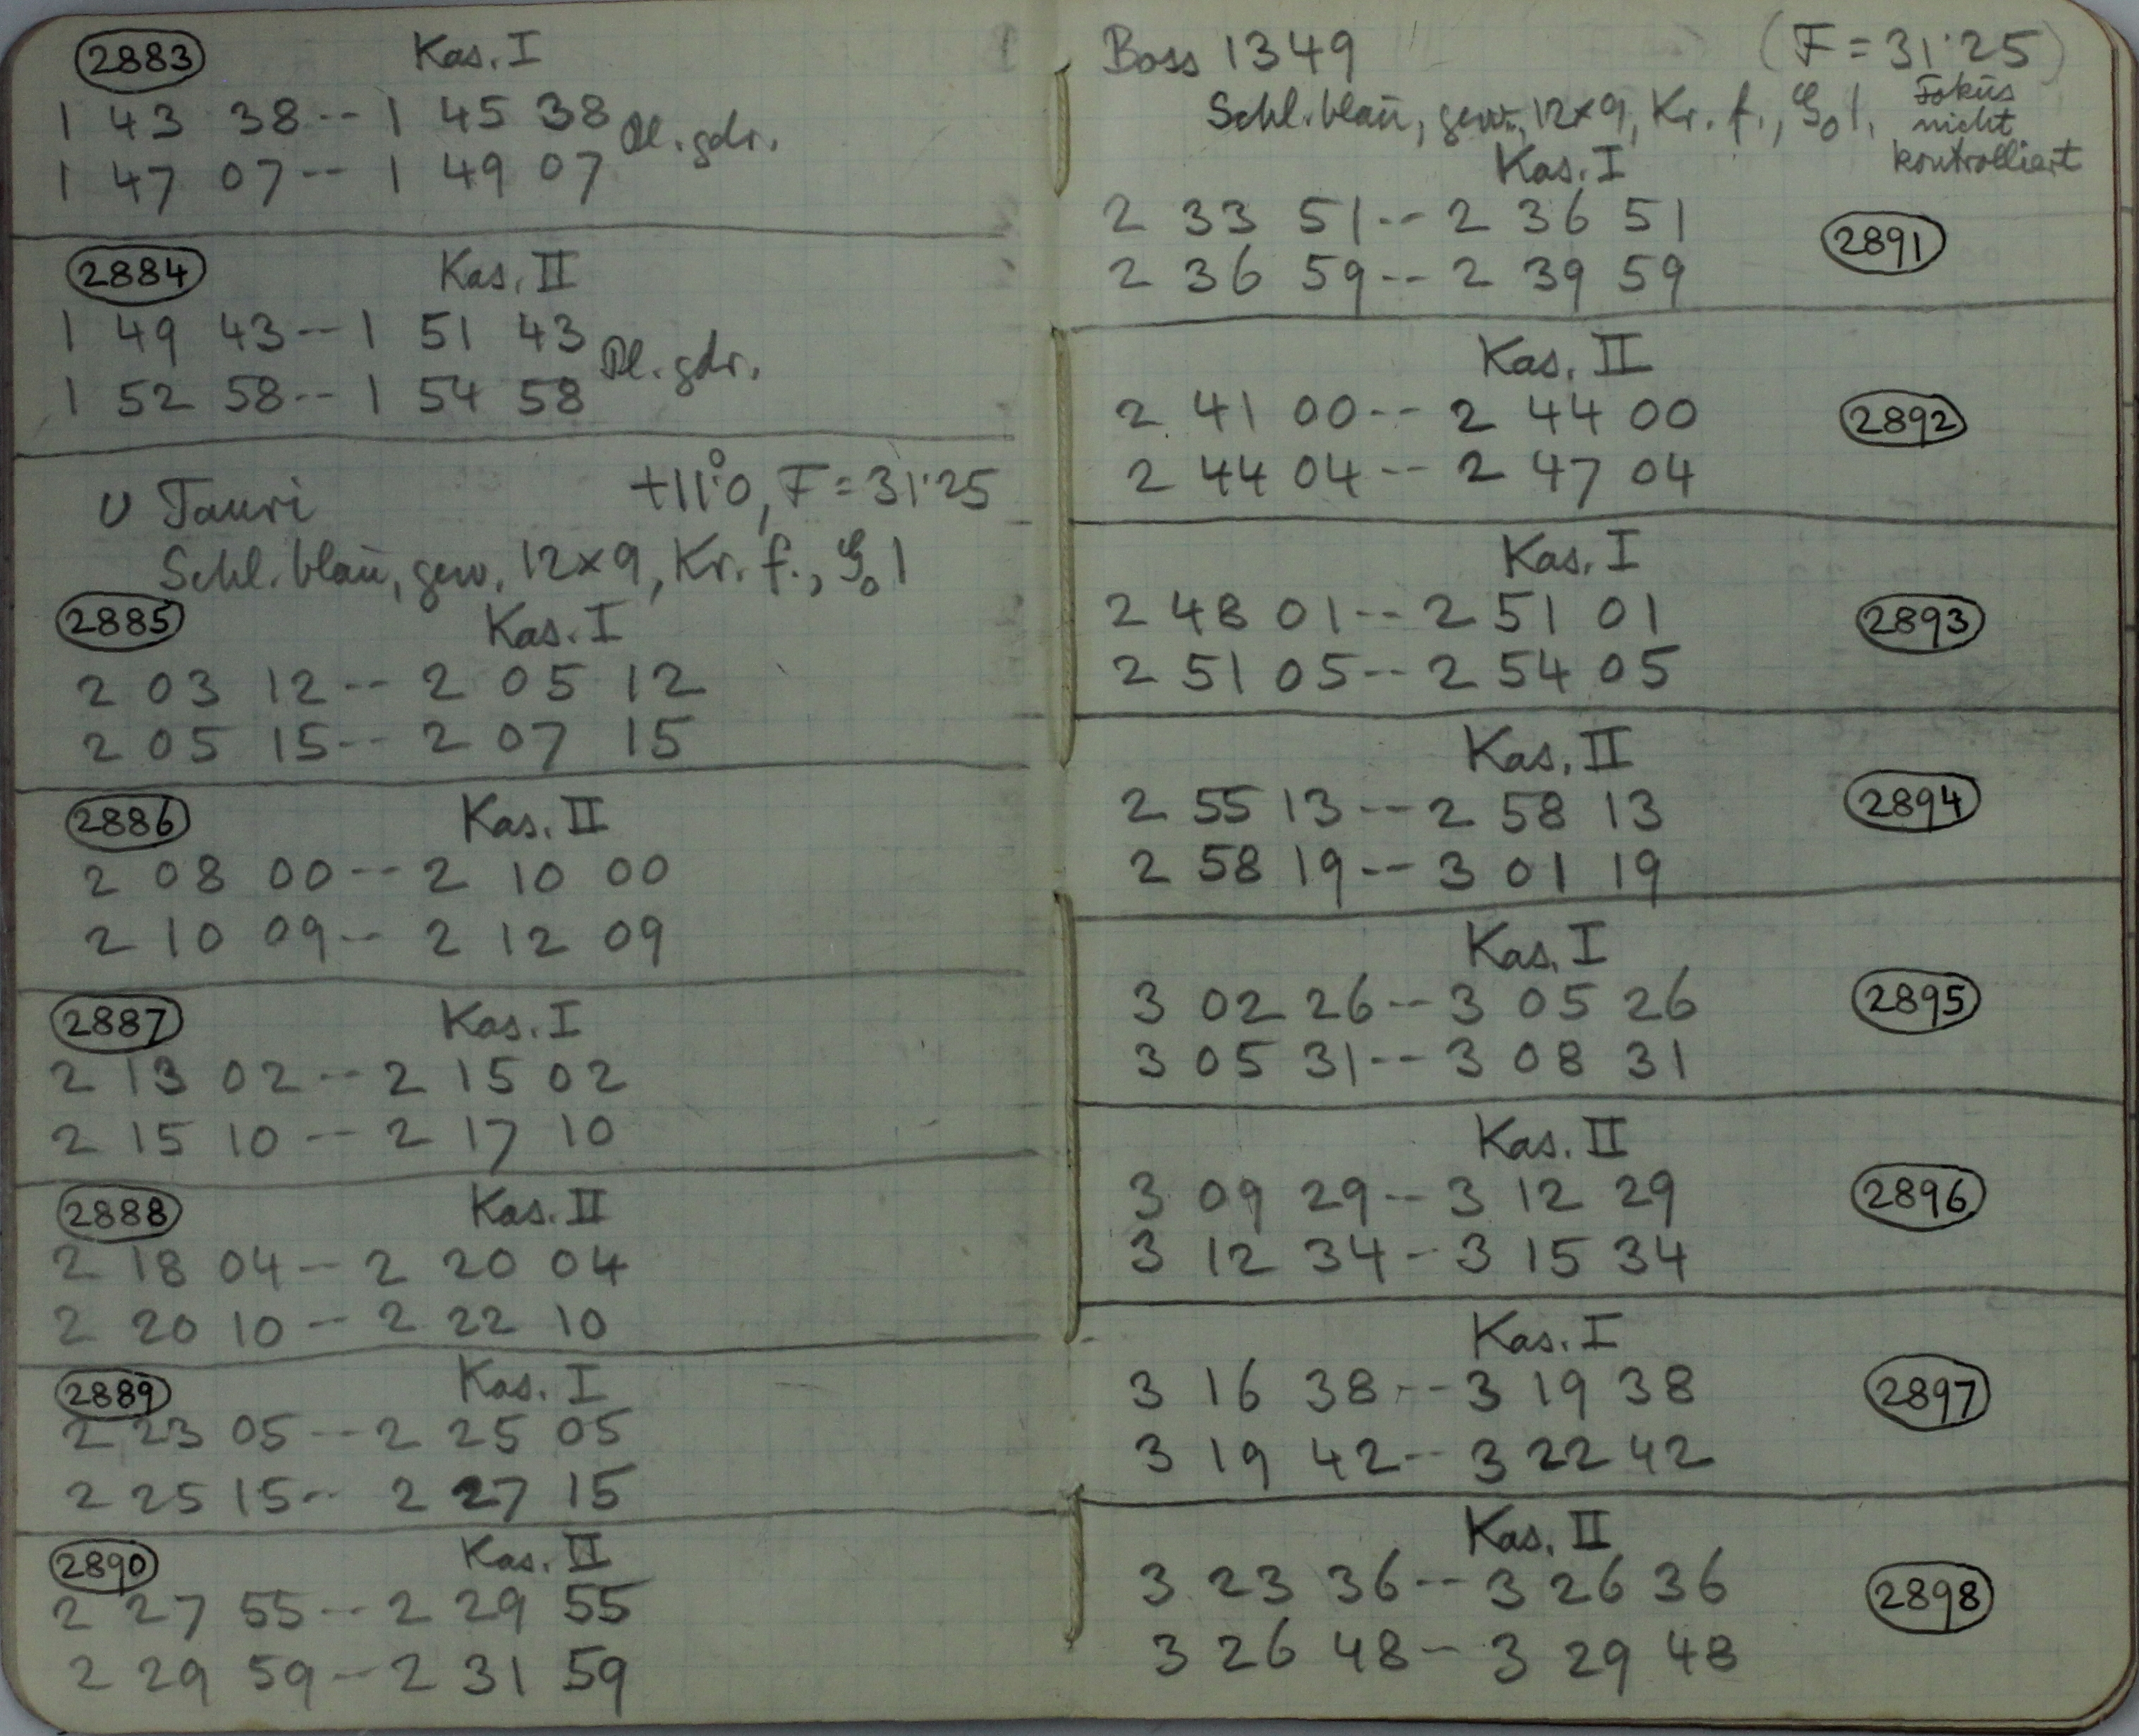 2883 Kas. I
1 43 38 -- 1 45 38 Pl. gdr.
1 47 07 -- 1 49 07
2884 Kas. II
1 49 43 -- 1 51 43 Pl. gdr.
1 52 58 -- 1 54 58
υ Tauri +11°0, F = 31·25
Schl. blau, gew. 12×9, Kr. f., 1
2885 Kas. I
2 03 12 -- 2 05 12
2 05 15 -- 2 07 15
2886 Kas. II
2 08 00 -- 2 10 00
2 10 09 -- 2 12 09
2887 Kas. I
2 13 02 -- 2 15 02
2 15 10 -- 2 17 10
2888 Kas. II
2 18 04 -- 2 20 04
2 20 10 -- 2 22 10
2889 Kas. I
2 23 05 -- 2 25 05
2 25 15 -- 2 27 15
2890 Kas. II
2 27 55 -- 2 29 55
2 29 59 -- 2 31 59
Boss 1349 (F = 31·25)
Schl. blau, gew., 12×9, Kr. f., 1. Fokus
nicht
kontrolliert
Kas. I
2 33 51 -- 2 36 51
2891
2 36 59 -- 2 39 59
Kas. II
2 41 00 -- 2 44 00 2892
2 44 04 -- 2 47 04
Kas. I
2 48 01 -- 2 51 01 2893
2 51 05 -- 2 54 05
Kas. II
2 55 13 -- 2 58 13 2894
2 58 19 -- 3 01 19
Kas. I
3 02 26 -- 3 05 26 2895
3 05 31 -- 3 08 31
Kas. II
3 09 29 -- 3 12 29 2896
3 12 34 - 3 15 34
Kas. I
3 16 38 -- 3 19 38 2897
3 19 42 -- 3 22 42
Kas. II
3 23 36 -- 3 26 36 2898
3 26 48 - 3 29 48